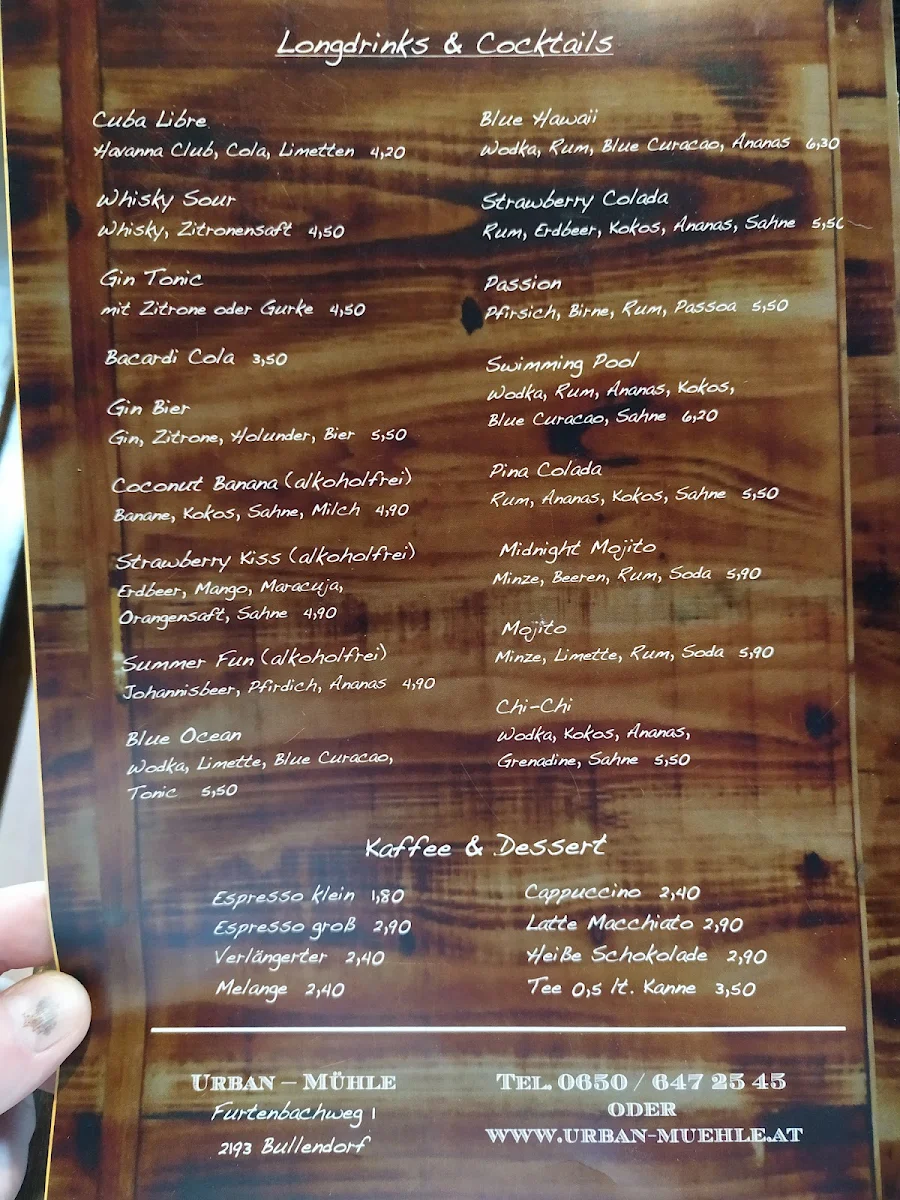 Longdrinks & Cocktails
Cuba Libre
Havanna Club, Cola, Limetten 4,20
Whisky Sour
Whisky, Zitronensaft 4,50
Gin Tonic
mit Zitrone oder Gurke 4,50
Bacardi Cola 3,50
Gin Bier
Gin, Zitrone, Holunder, Bier 5,50
Coconut Banana (alkoholfrei)
Banane, Kokos, Sahne, Milch 4,90
Strawberry Kiss (alkoholfrei)
Erdbeer, Mango, Maracuja,
Orangensaft, Sahne 4,90
Summer Fun (alkoholfrei)
Johannisbeer, Pfirdich, Ananas 4,90
Blue Ocean
Wodka, Limette, Blue Curacao,
Tonic 5,50
Blue Hawaii
Wodka, Rum, Blue Curacao, Ananas 6,30
Strawberry Colada
Rum, Erdbeer, Kokos, Ananas, Sahne 5,50
Passion
Pfirsich, Birne, Rum, Passoa 5,50
Swimming Pool
Wodka, Rum, Ananas, Kokos,
Blue Curacao, Sahne 6,20
Pina Colada
Rum, Ananas, Kokos, Sahne 5,50
Midnight Mojito
Minze, Beeren, Rum, Soda 5,90
Mojito
Minze, Limette, Rum, Soda 5,90
Chi-Chi
Wodka, Kokos, Ananas,
Grenadine, Sahne 5,50
Kaffee & Dessert
Espresso klein 1,80
Espresso groß 2,90
Verlängerter 2,40
Melange 2,40
Cappuccino 2,40
Latte Macchiato 2,90
Heiße Schokolade 2,90
Tee 0,5 lt. Kanne 3,50
Urban – Mühle
Furtenbachweg 1
2193 Bullendorf
Tel. 0650 / 647 25 45
oder
www.urban-muehle.at